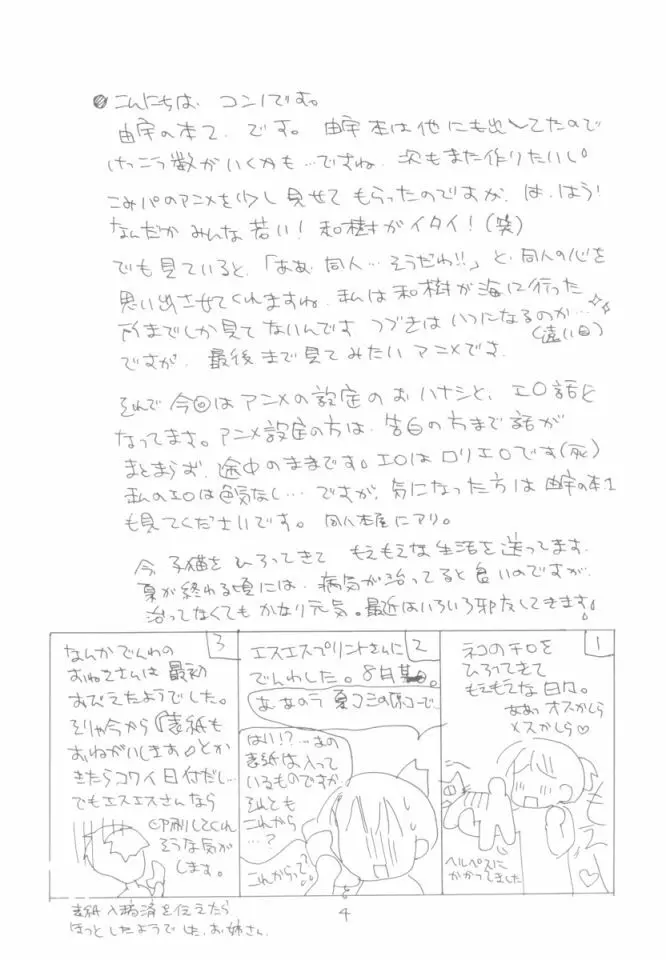 こんにちは、コン！です。
由宇の本2、です。由宇本は他にも出してたので
けっこう数がいくかも…ですね、次もまた作りたいし。
こみパのアニメを少し見せてもらったのですが、は、はう！
なんだかみんな若い！和樹がイタイ！（笑）
でも見ていると、「ああ、同人…そうだわ!!」と、同人の心を
思い出させてくれますね、私は和樹が海に行った
所までしか見てないんです つづきはいつになるのか…
（遠い目）
ですが、最後まで見てみたいアニメです。
それで今回はアニメの設定のおハナシと、エロ話と
なってます。アニメ設定の方は、告白の方まで話が
まとまらず、途中のままです。エロはロリエロです（死）
私のエロは色気なし…ですが、気になった方は由宇の本1
も見てくださいです。同人本屋にアリ。
今、子猫をひろってきて もえもえな生活を送ってます。
夏が終わる頃には、病気が治ってると良いのですが、
治ってなくてもかなり元気。最近はいろいろ邪魔してきます。
1
ネコのチロを
ひろってきて
もえもえな日々。
ああっオスかしら
メスかしら♡
もえ
ヘルペスに
かかってました
2
エスエスプリントさんに
でんわした。8月某日。
あ、あのう 夏コミの原コーで、
はい!?…あの
表紙は入って
いるものですが
それとも
これから
…？
これからって？
3
なんかでんわの
おねえさんは最初
おびえたようでした。
そりゃ今から『表紙も
おねがいします』とか
きたらコワイ日付だし…
でもエスエスさんなら
印刷してくれ
そうな気が
します。
表紙入稿済を伝えたら
ほっとしたようでした、お姉さん。
4